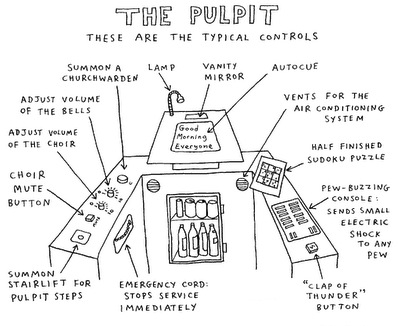 THE PULPIT
THESE ARE THE TYPICAL CONTROLS
SUMMON A
CHURCHWARDEN
LAMP
VANITY
MIRROR
AUTOCUE
ADJUST VOLUME
OF THE BELLS
VENTS FOR THE
AIR CONDITIONING
SYSTEM
Good
Morning
Everyone
ADJUST VOLUME
OF THE CHOIR
HALF FINISHED
SUDOKU PUZZLE
CHOIR
MUTE
BUTTON
PEW-BUZZING
CONSOLE:
SENDS SMALL
ELECTRIC
SHOCK
TO ANY
PEW
SUMMON
STAIRLIFT FOR
PULPIT STEPS
EMERGENCY CORD:
STOPS SERVICE
IMMEDIATELY
"CLAP OF
THUNDER"
BUTTON